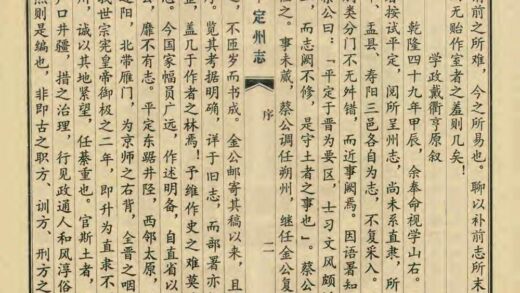 前之所难，今之所易也。聊以补前志所未
无贻作室者之羞则几矣！
学政戴衢亨原叙
乾隆四十九年甲辰，余奉命视学山右。
者按试平定，阅所呈州志，尚未系直隶，所
、盂县、寿阳三邑各自为志，不复采入。
类分门不无舛错，而近事阙焉。因语署知
蔡公曰：「平定于晋为要区，士习文风颇
，而志阙不修，是守土者之事也」。蔡公
任之。事未蒇，蔡公调任朔州，继任金公复
定州志
序
二
，不匝岁而书成。金公邮寄其稿以来，且
序。览其考据明确，详于旧志，而部署亦
盖几于作者之林焉！予维作史之难莫
志。今国家幅员广远，作述明备，自直省以
，靡不有志。平定东踞井陉，西邻太原，
辽阳，北带雁门，为京师之右背，全晋之咽
我世宗宪皇帝御极之二年，即升为直隶不
州，诚以其地紧望，任綦重也。官斯土者，
户口井疆，措之治理，行见政通人和风淳俗
然则是编也，非即古之职方、训方、刑方之